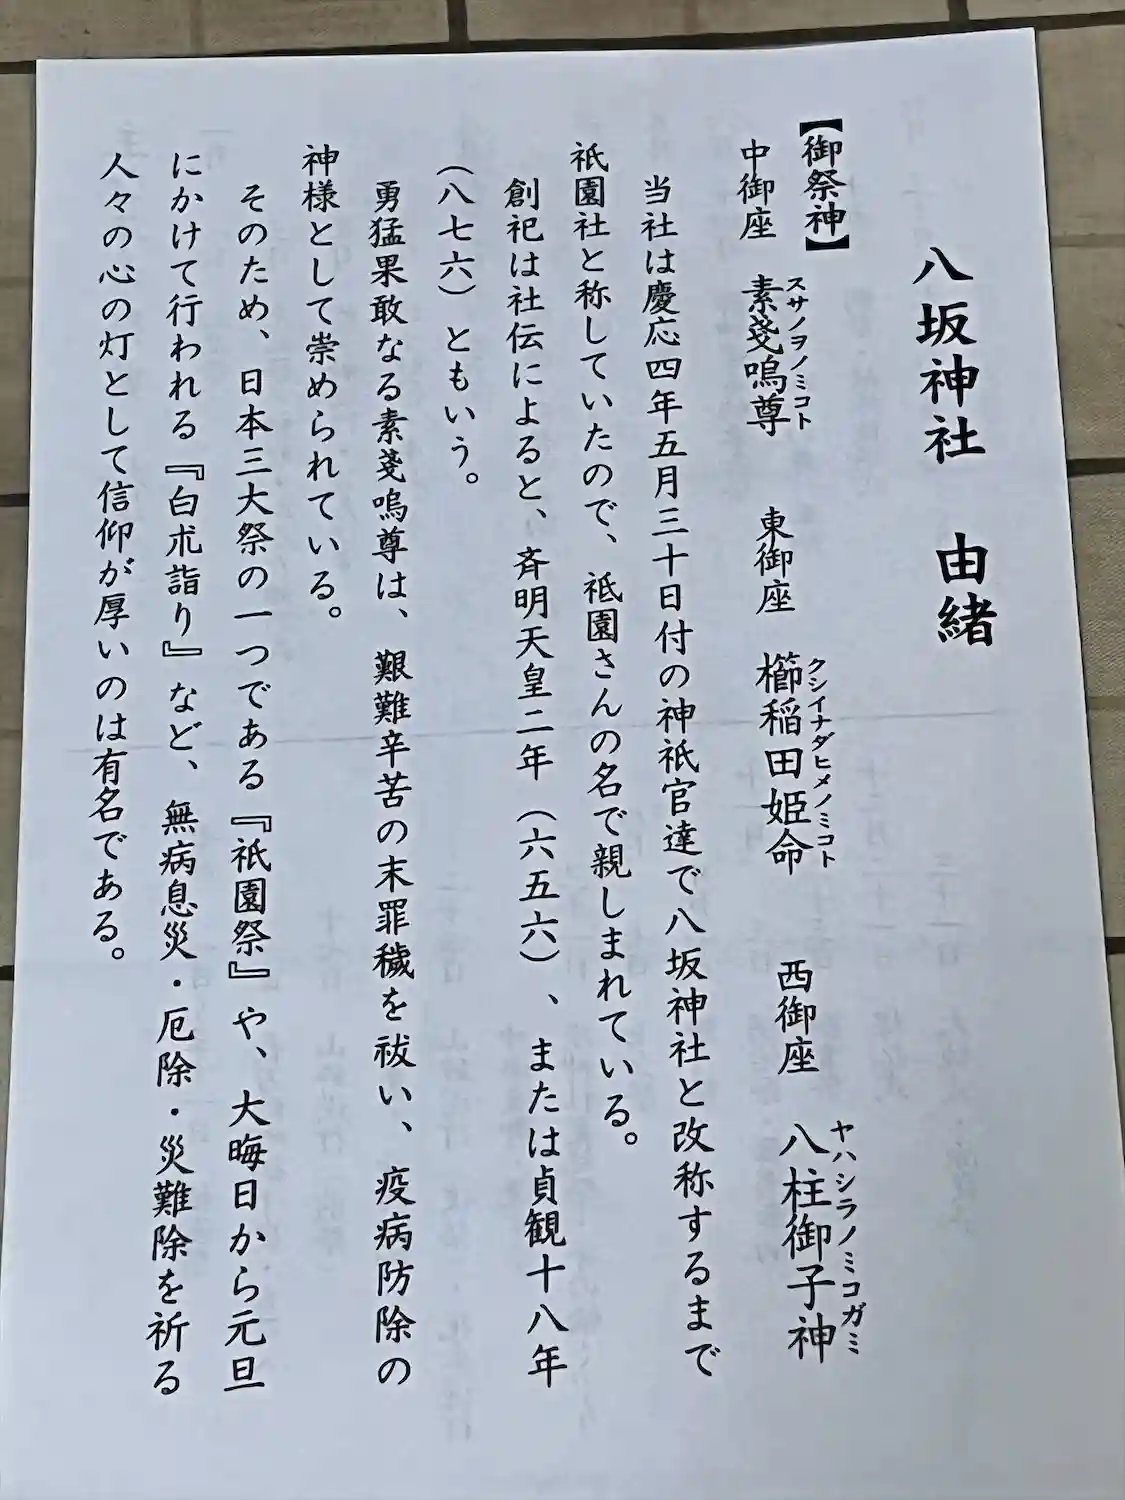 八坂神社　由緒
【御祭神】
中御座　素戔嗚尊　東御座　櫛稲田姫命　西御座　八柱御子神
スサノヲノミコト　クシイナダヒメノミコト　ヤハシラノミコガミ
当社は慶応四年五月三十日付の神祇官達で八坂神社と改称するまで
祇園社と称していたので、祗園さんの名で親しまれている。
創祀は社伝によると、斉明天皇二年（六五六）、または貞観十八年
（八七六）ともいう。
勇猛果敢なる素戔嗚尊は、艱難辛苦の末罪穢を祓い、疫病防除の
神様として崇められている。
そのため、日本三大祭の一つである『祇園祭』や、大晦日から元旦
にかけて行われる『白朮詣り』など、無病息災・厄除・災難除を祈る
人々の心の灯として信仰が厚いのは有名である。